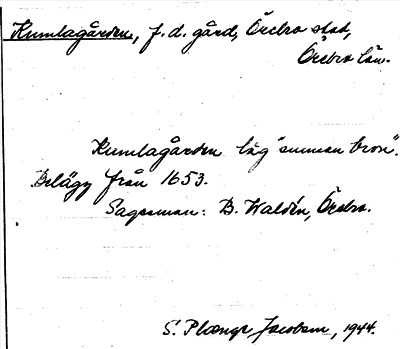 Kumlagården, f. d. gård, Örebro stad,
Örebro län.
Kumlagården låg "sunnan bron".
Belägg från 1653.
Sagesman: B. Waldén, Örebro.
S. Plænge Jacobson, 1944.